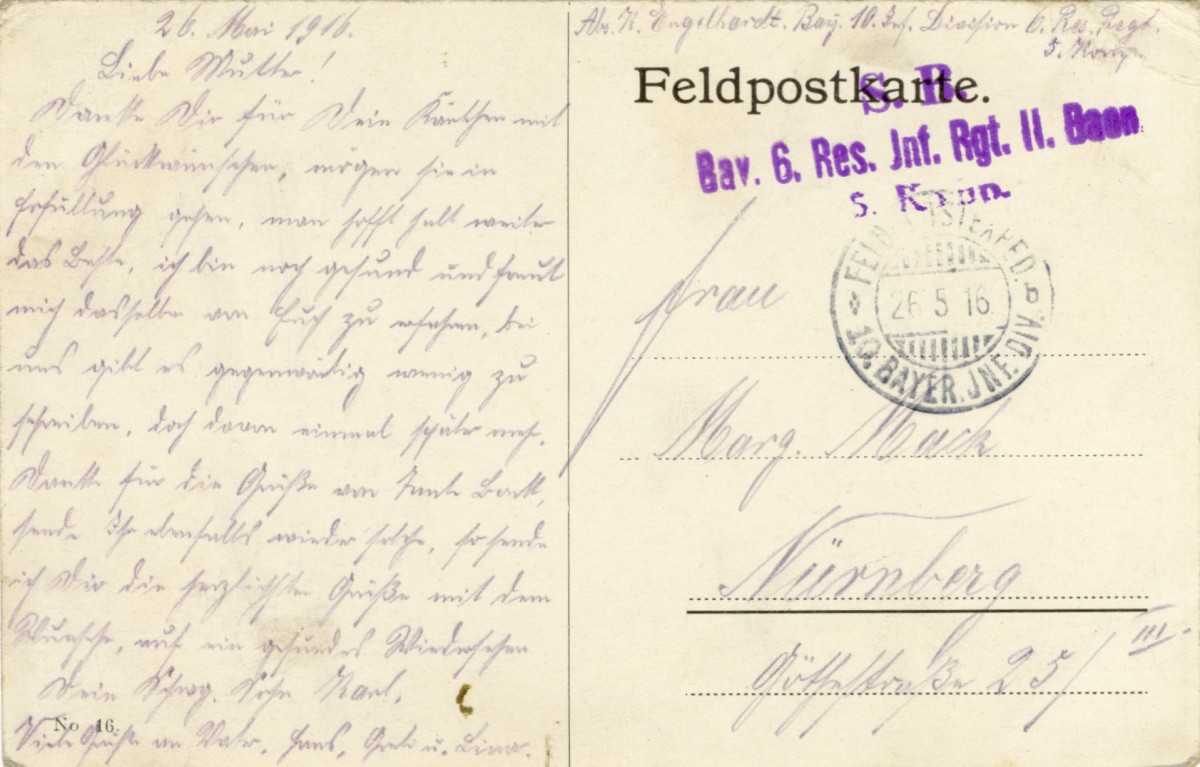 26. Mai 1916.
Liebe Mutter!
Danke Dir für Dein Kärtchen mit
den Glückwünschen, mögen sie in
Erfüllung gehen, man hofft halt weiter
das Beste, ich bin noch gesund und freut
mich dasselbe von Euch zu erfahren, bei
uns gibt es gegenwärtig wenig zu
schreiben, doch davon einmal später mehr.
Danke für die Grüße von Tante
sende Ihr ebenfalls wieder solche, so sende
ich Dir die herzlichsten Grüße mit dem
Wunsche, auf ein gesundes Wiedersehen
Dein Schwg. Sohn Karl.
No 16.
Viele Grüße an Vater, Hans, Greti u.
Abs. K. Engelhardt. Bay. 10. Inf. Division 6. Res. Regt.
5. Komp.
Feldpostkarte.
S. B.
Bay. 6. Res. Inf. Rgt. II. Baon
5. Komp.
FELDPOSTEXPED. b
26 5 16
* 10. BAYER. INF. DIV.
Frau
Marg. Mack
Nürnberg
Göthestraße 25/III.